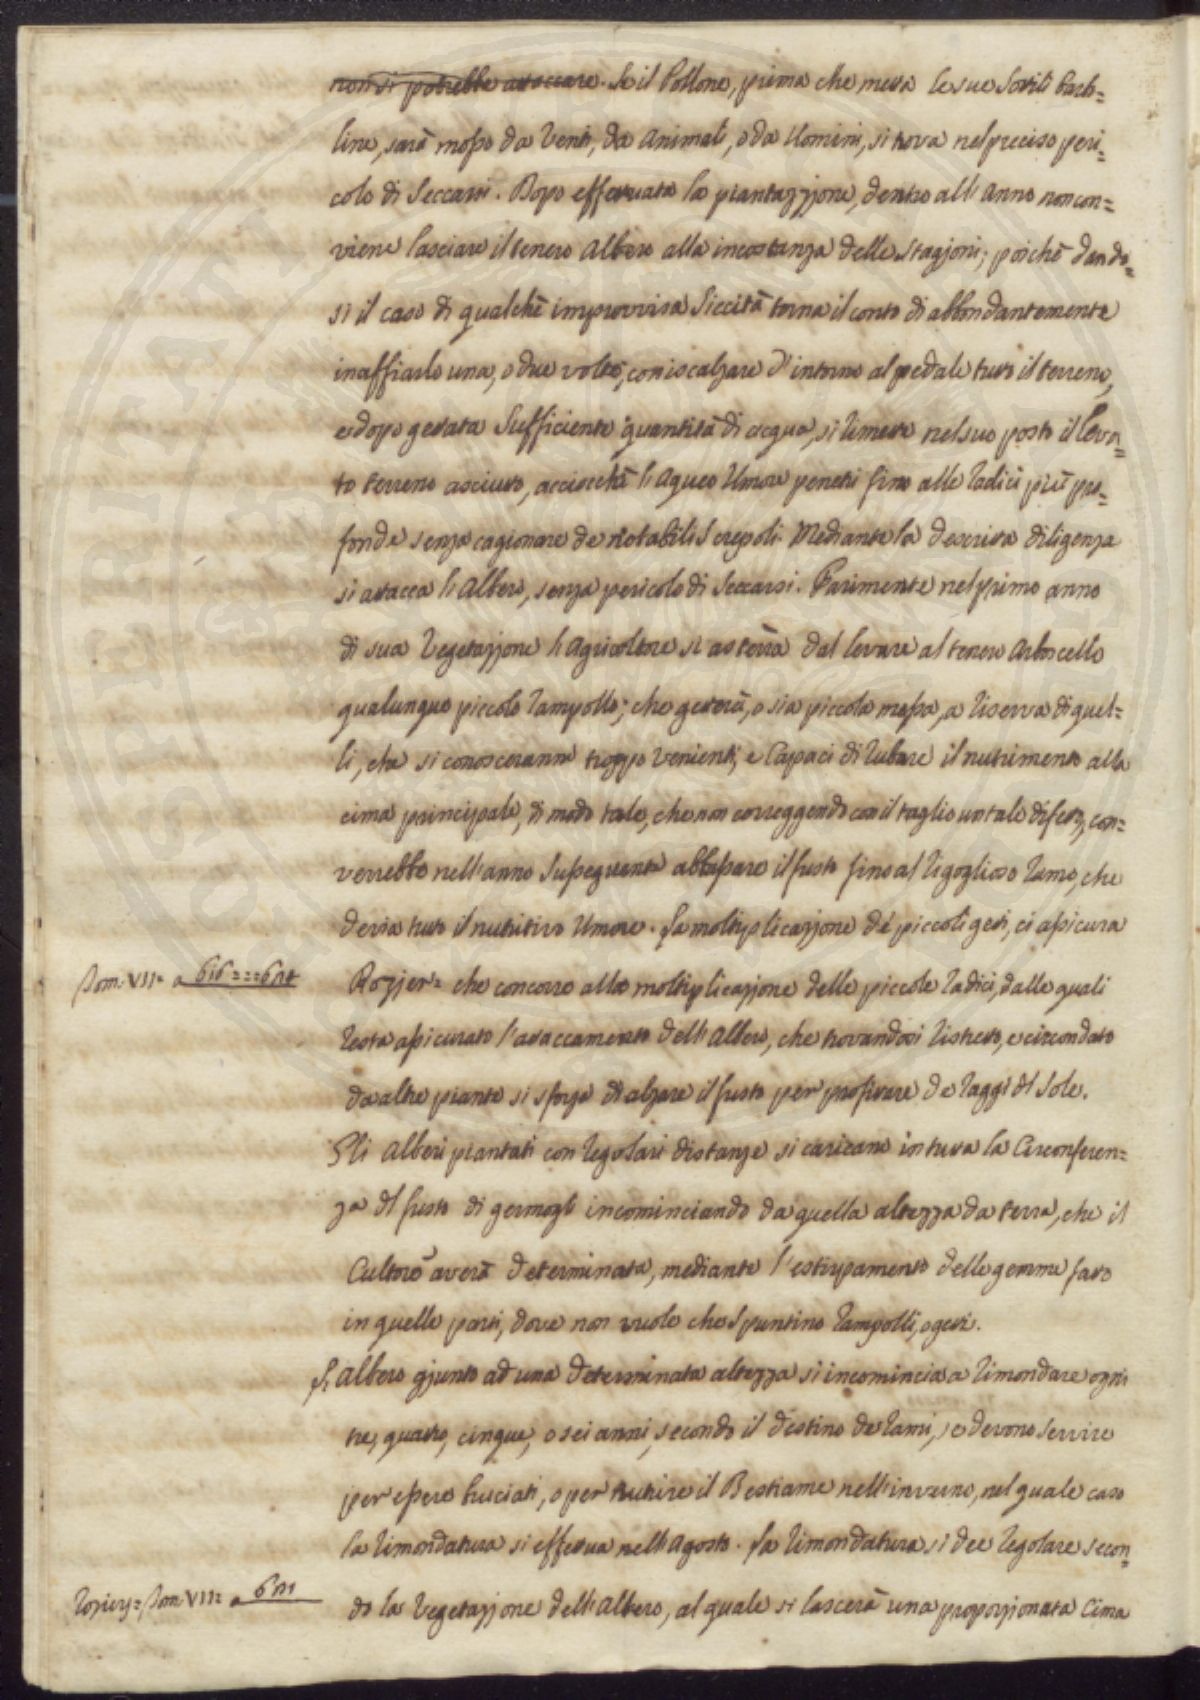 non si potrebbe attaccare. Se il Pollone, prima che metta le sue Sottili barb=
line, sarà mosso da Venti, da Animali, o da Uomini, si trova nel preciso peri=
colo di Seccarsi. Dopo effettuata la piantazzione, dentro all'Anno non con=
viene lasciare il tenero Albero alla incostanza delle Stagioni; poichè dando=
si il caso di qualche improvvisa Siccità torna il conto di abbondantemente
inaffiarlo una, o due volte, con iscalzare d'intorno al pedale tutto il terreno,
e dopo gettata Sufficiente quantità di acqua, si rimette nel suo posto il leva=
to terreno asciutto, acciocchè l'Aqueo Umore penetri fino alle radici più pro=
fonde senza cagionare de notabili Screpoli. Mediante la descritta diligenza
si attacca l'Albero, senza pericolo di Seccarsi. Parimente nel primo anno
di sua Vegetazzione l'Agricoltore si asterrà dal levare al tenero Arboscello
qualunque piccolo rampollo, che getterà, o sia piccola messa, a riserva di quel=
li, che si conosceranno troppo venienti, e Capaci di rubare il nutrimento alla
cima principale, di modo tale, che non correggendo con il taglio un tale difetto, con=
verrebbe nell'anno Susseguente abbassare il fusto fino al rigoglioso ramo, che
devia tutto il nutritivo Umore. La moltiplicazzione de' piccoli getti, ci assicura
Tom: VII= a 616==617
Rozier= che concorre alla moltiplicazzione delle piccole radici, dalle quali
resta assicurato l'attaccamento dell'Albero, che trovandosi ristretto, e circondato
da altre piante si sforza di alzare il fusto per profittare de raggi del Sole.
Gli Alberi piantati con regolari distanze si caricano in tutta la Circonferen=
za del fusto di germogli incominciando da quella altezza da terra, che il
Cultore averà determinata, mediante l'estirpamento delle gemme fatto
in quelle parti, dove non vuole che Spuntino rampolli, o getti.
L'Albero giunto ad una determinata altezza si incomincia a rimondare ogni
tre, quattro, cinque, o sei anni, secondo il destino de rami, se devono servire
per essere bruciati, o per nutrire il Bestiame nell'inverno, nel quale caso
la rimondatura si effettua nell'Agosto. La rimondatura si dee regolare secon=
Rozier= Tom VII= a
do la Vegetazzione dell'Albero, al quale si lascerà una proporzionata Cima